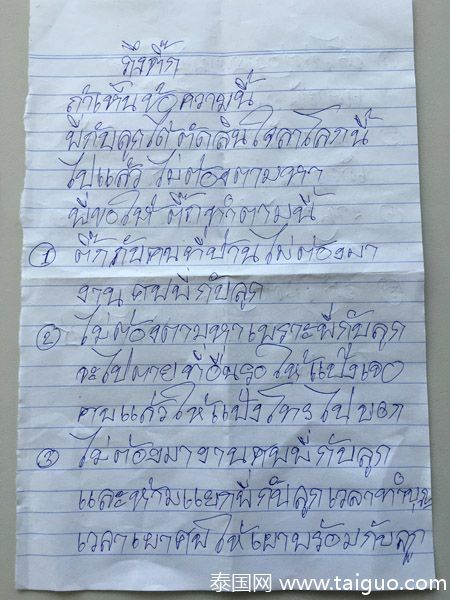 ถึงติ๊ก
ถ้าเห็นข้อความนี้
พี่กับลูกได้ตัดสินใจลาโลกนี้
ไปแล้ว ไม่ต้องตามหา
พี่ขอให้ติ๊กทำตามนี้
① ติ๊กกับคนที่บ้านไม่ต้องมา
งานศพพี่กับลูก
② ไม่ต้องตามหาเพราะพี่กับลูก
จะไปตายที่อื่นรอให้แป้งเจอ
ศพแล้วให้แป้งโทรไปบอก
③ ไม่ต้องมางานศพพี่กับลูก
และห้ามแยกพี่กับลูกเวลาทำบุญ
เวลาเผาศพให้เผาพร้อมกับลูก
泰国网 www.taiguo.com